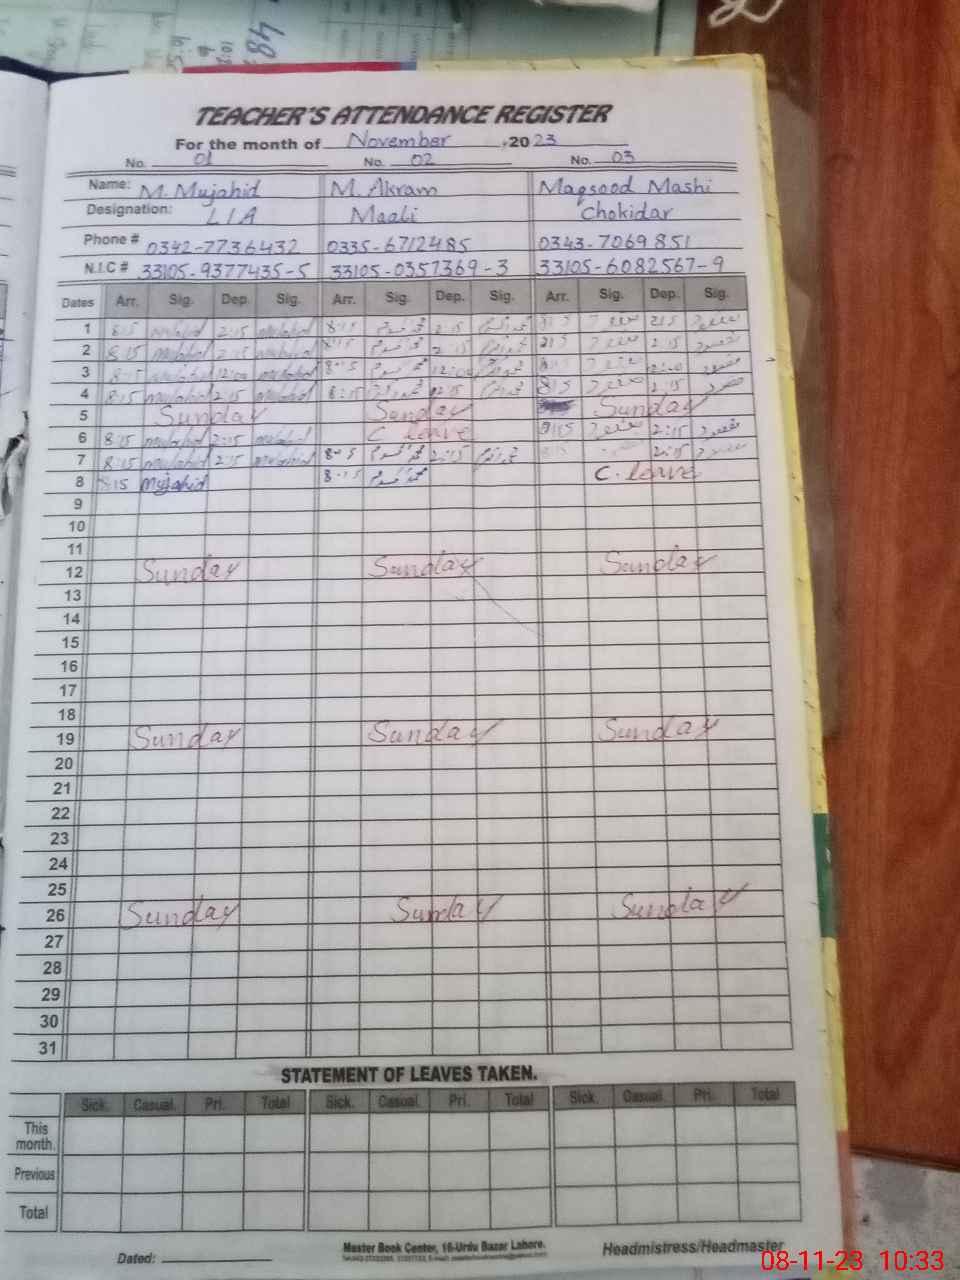 TEACHER'S ATTENDANCE REGISTER
For the month of November 2023
No. 01 No. 02 No. 03
Name: M. Mujahid M. Akram Maqsood Mashi
Designation: LIA Maali Chokidar
Phone # 0342-7736432 0335-6712485 0343-7069851
N.I.C # 33105-9377435-5 33105-0357369-3 33105-6082567-9
Dates Arr. Sig. Dep. Sig. Arr. Sig. Dep. Sig. Arr. Sig. Dep. Sig.
1 8:15 mujahid 2:15 mujahid 8:15 2:15 215
2 8:15 mujahid 2:15 mujahid 8:15 2:15 2:15
3 8:15 mujahid 12:00 mujahid 8:15 12:00
4 8:15 mujahid 2:15 mujahid 8:15 2:15 815 2:15
5 Sunday Sunday Sunday
6 8:15 mujahid 2:15 mujahid C leave 2:15
7 8:15 mujahid 2:15 mujahid 2:15 2:15
8 8:15 Mujahid 8:15 C. leave
9
10
11
12 Sunday Sunday Sunday
13
14
15
16
17
18
19 Sunday Sunday Sunday
20
21
22
23
24
25
26 Sunday Sunday Sunday
27
28
29
30
31
STATEMENT OF LEAVES TAKEN.
Sick. Casual. Pri. Total Sick. Casual. Pri. Total Sick. Casual. Pri. Total
This month.
Previous
Total
Dated: Master Book Center, 16-Urdu Bazar Lahore. Headmistress/Headmaster
08-11-23 10:33